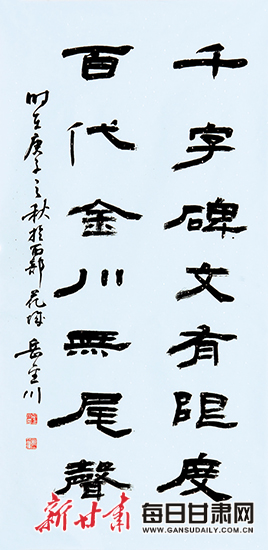 千字碑文有限度
百代金川無尾聲
时在庚子之秋於西部花城 岳金川
新甘肃
每日甘肃网
WWW.GANSUDAILY.COM.CN